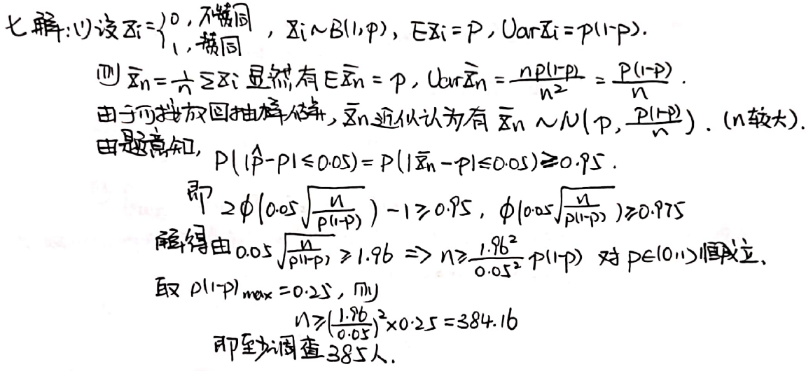 七.解:(1)设Xi={0,不赞同 1,赞同 , Xi~B(1,p), EXi=p, VarXi=p(1-p).
则 X̄n=1/n ΣXi 显然有 EX̄n=p, VarX̄n=np(1-p)/n²=p(1-p)/n.
由于可按放回抽样估计, X̄n近似认为有 X̄n~N(p, p(1-p)/n). (n较大).
由题意知, P(|p̂-p|≤0.05)=P(|X̄n-p|≤0.05)≥0.95.
即 2Φ(0.05√(n/p(1-p)))-1≥0.95, Φ(0.05√(n/p(1-p)))≥0.975
解得由0.05√(n/p(1-p))≥1.96 => n≥1.96²/0.05² p(1-p) 对 p∈(0,1)恒成立.
取 p(1-p)max=0.25, 则
n≥(1.96/0.05)²×0.25=384.16
即至少调查385人.